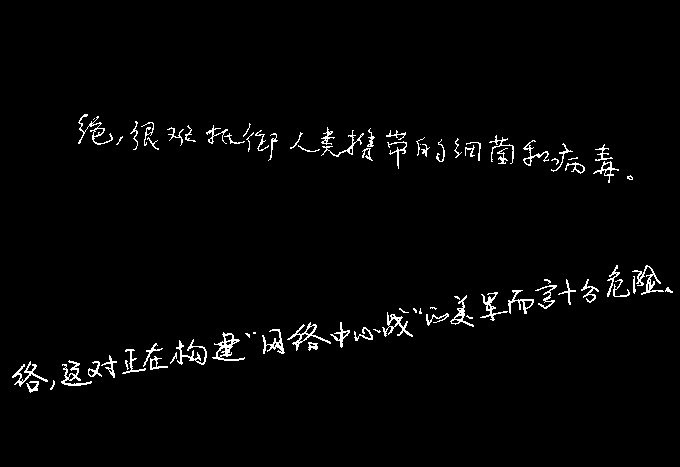 绝,很难抵御人类携带的细菌和病毒。
络,这对正在构建"网络中心战"的美军而言十分危险。